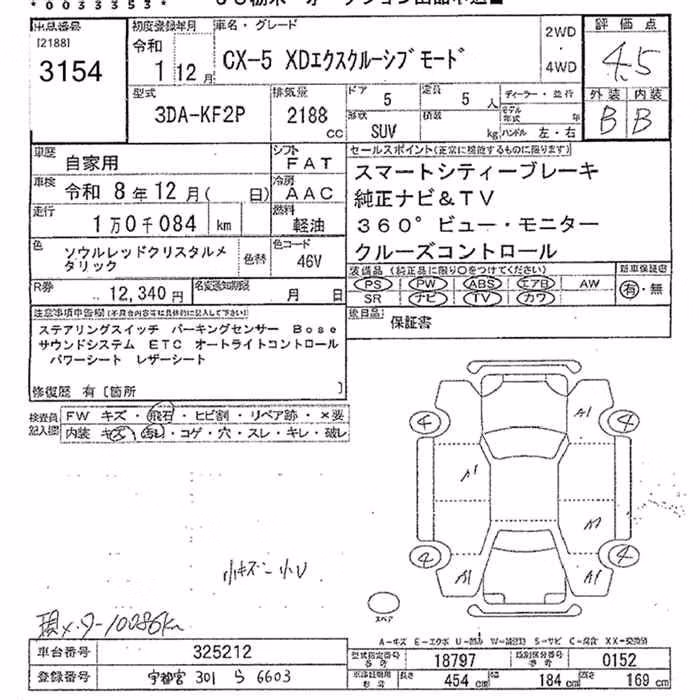 *0033353*
出品番号
[2188]
3154
初度登録年月
令和
1 12月
車名・グレード
CX-5 XDエクスクルーシブモード
2WD
・
4WD
評価点
4.5
外装 内装
B B
型式
3DA-KF2P
排気量
2188
cc
ドア
5
定員
5 人
形状
SUV
積載
kg
ディーラー・並行
モデル年式 年
ハンドル 左・右
車歴
自家用
シフト
FAT
車検
令和 8年12月( 日)
冷房
AAC
走行
1万0千084 km
燃料
軽油
色
ソウルレッドクリスタルメ
タリック
色替
色コード
46V
R券
12,340円
名変通知期限
月 日
セールスポイント(正常に機能するものに限ります)
スマートシティーブレーキ
純正ナビ&TV
360°ビュー・モニター
クルーズコントロール
装備品(純正品に限り○をつけてください)
PS PW ABS エアB AW
SR ナビ TV カワ
新車保証書
有・無
後日品
保証書
注意事項申告欄
ステアリングスイッチ パーキングセンサー Bose
サウンドシステム ETC オートライトコントロール
パワーシート レザーシート
修復歴 有[箇所 ]
検査員
記入欄
FW キズ・飛石・ヒビ割・リペア跡・×要
内装 キズ・汚レ・コゲ・穴・スレ・キレ・破レ
4 A1 4
A1
A2
4 A1 A1 4
小キズ 小U
スペア
現メータ-10086km
A-キズ E-エクボ U-凹み W-補修跡 S-サビ C-腐食 XX-交換済
車台番号
325212
登録番号
宇都宮 301 ら 6603
型式指定番号
18797
類別区分番号
0152
長さ
454 cm
幅
184 cm
高さ
169 cm